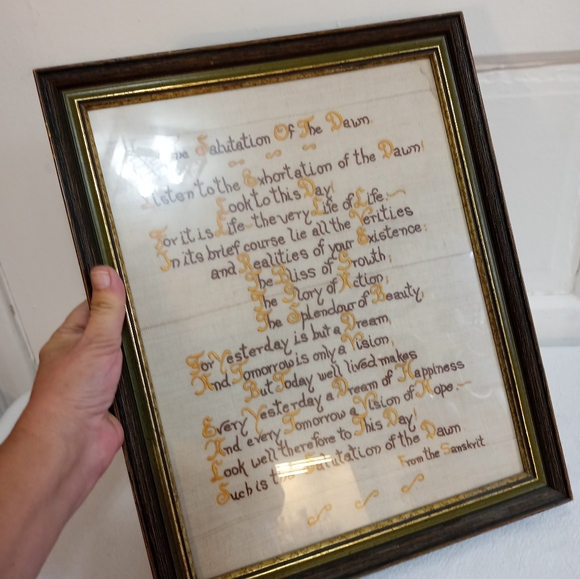 Salutation Of The Dawn
Listen to the Exhortation of the Dawn!
Look to this Day!
For it is Life - the very Life of Life. -
In its brief course lie all the Verities
and Realities of your Existence:
The Bliss of Growth,
The Glory of Action,
The Splendour of Beauty,
For Yesterday is but a Dream,
And Tomorrow is only a Vision,
But Today well lived makes
Every Yesterday a Dream of Happiness
And every Tomorrow a Vision of Hope. -
Look well therefore to This Day!
Such is the Salutation of the Dawn
From the Sanskrit